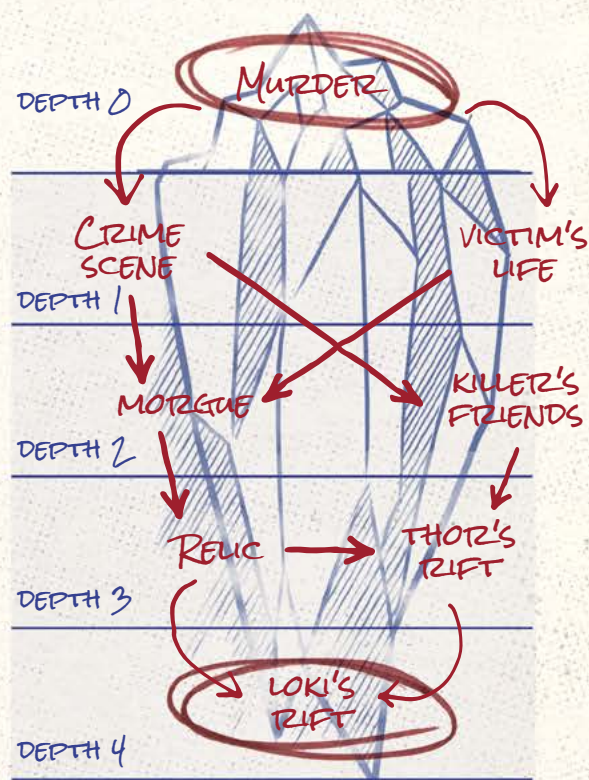 MURDER
DEPTH 0
CRIME
SCENE
VICTIM'S
LIFE
DEPTH 1
MORGUE
KILLER'S
FRIENDS
DEPTH 2
RELIC
THOR'S
RIFT
DEPTH 3
LOKI'S
RIFT
DEPTH 4